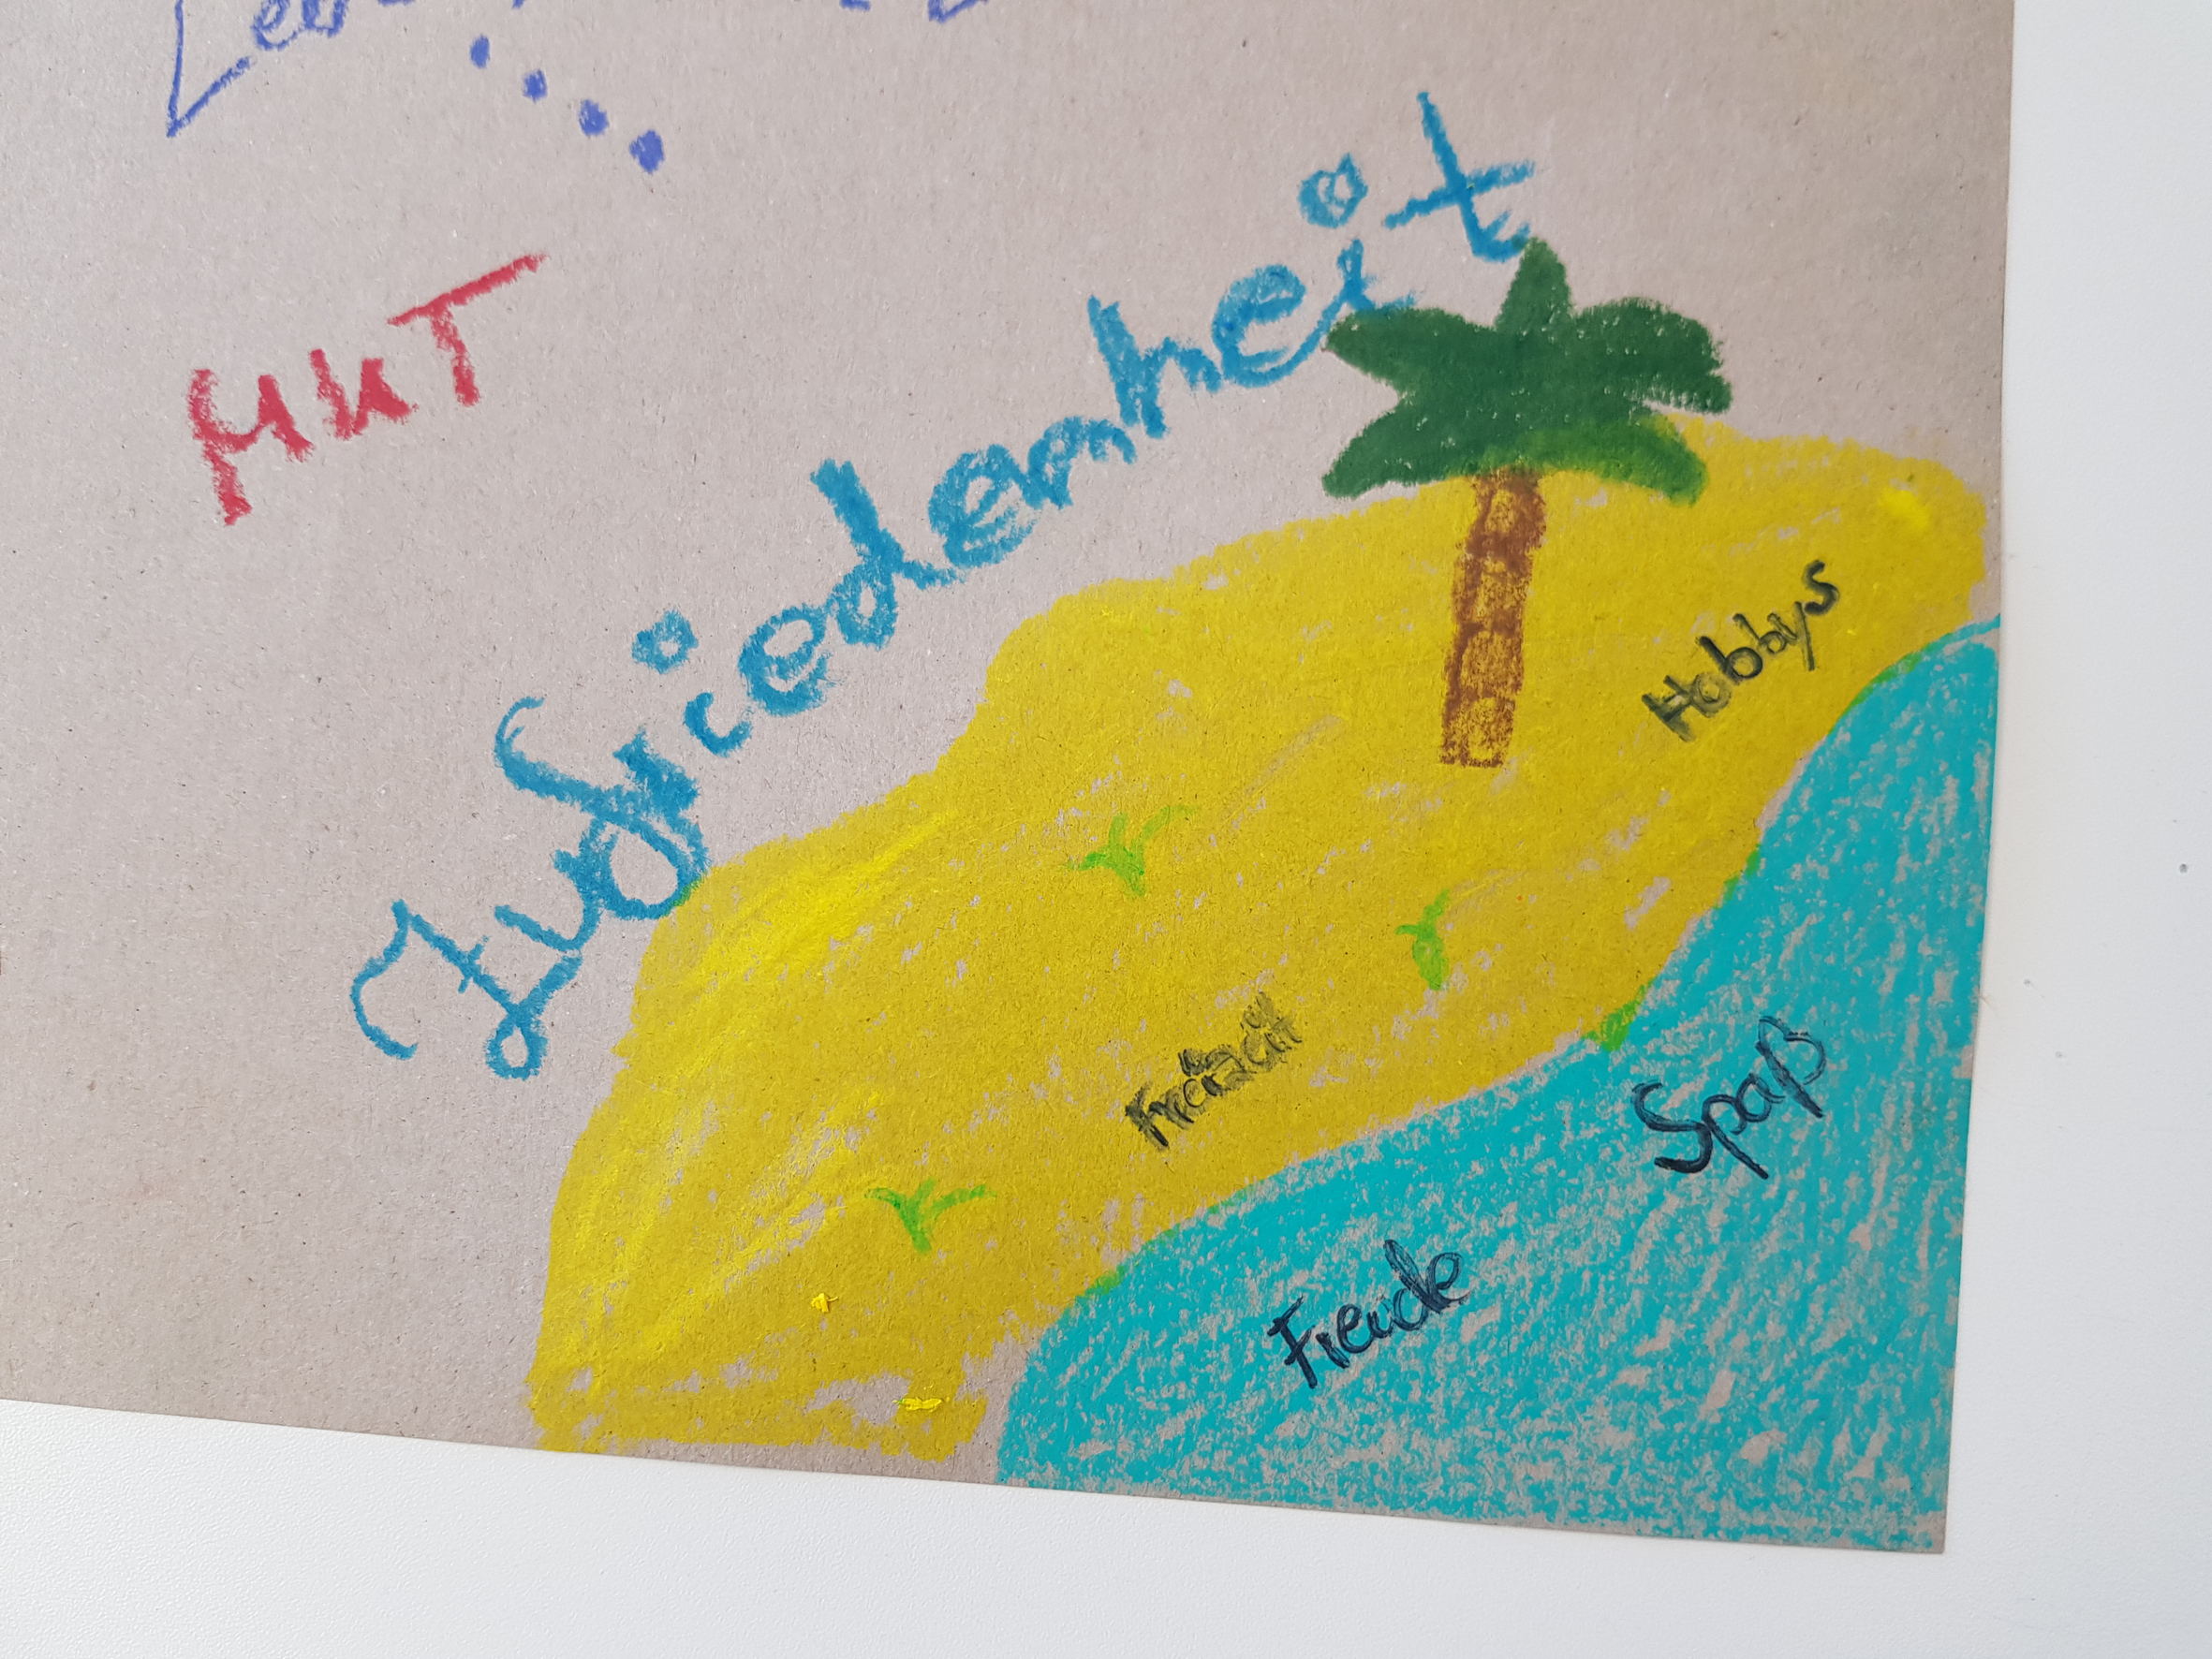 MuT
Zufriedenheit
Hobbys
Freizeit
Spaß
Freude